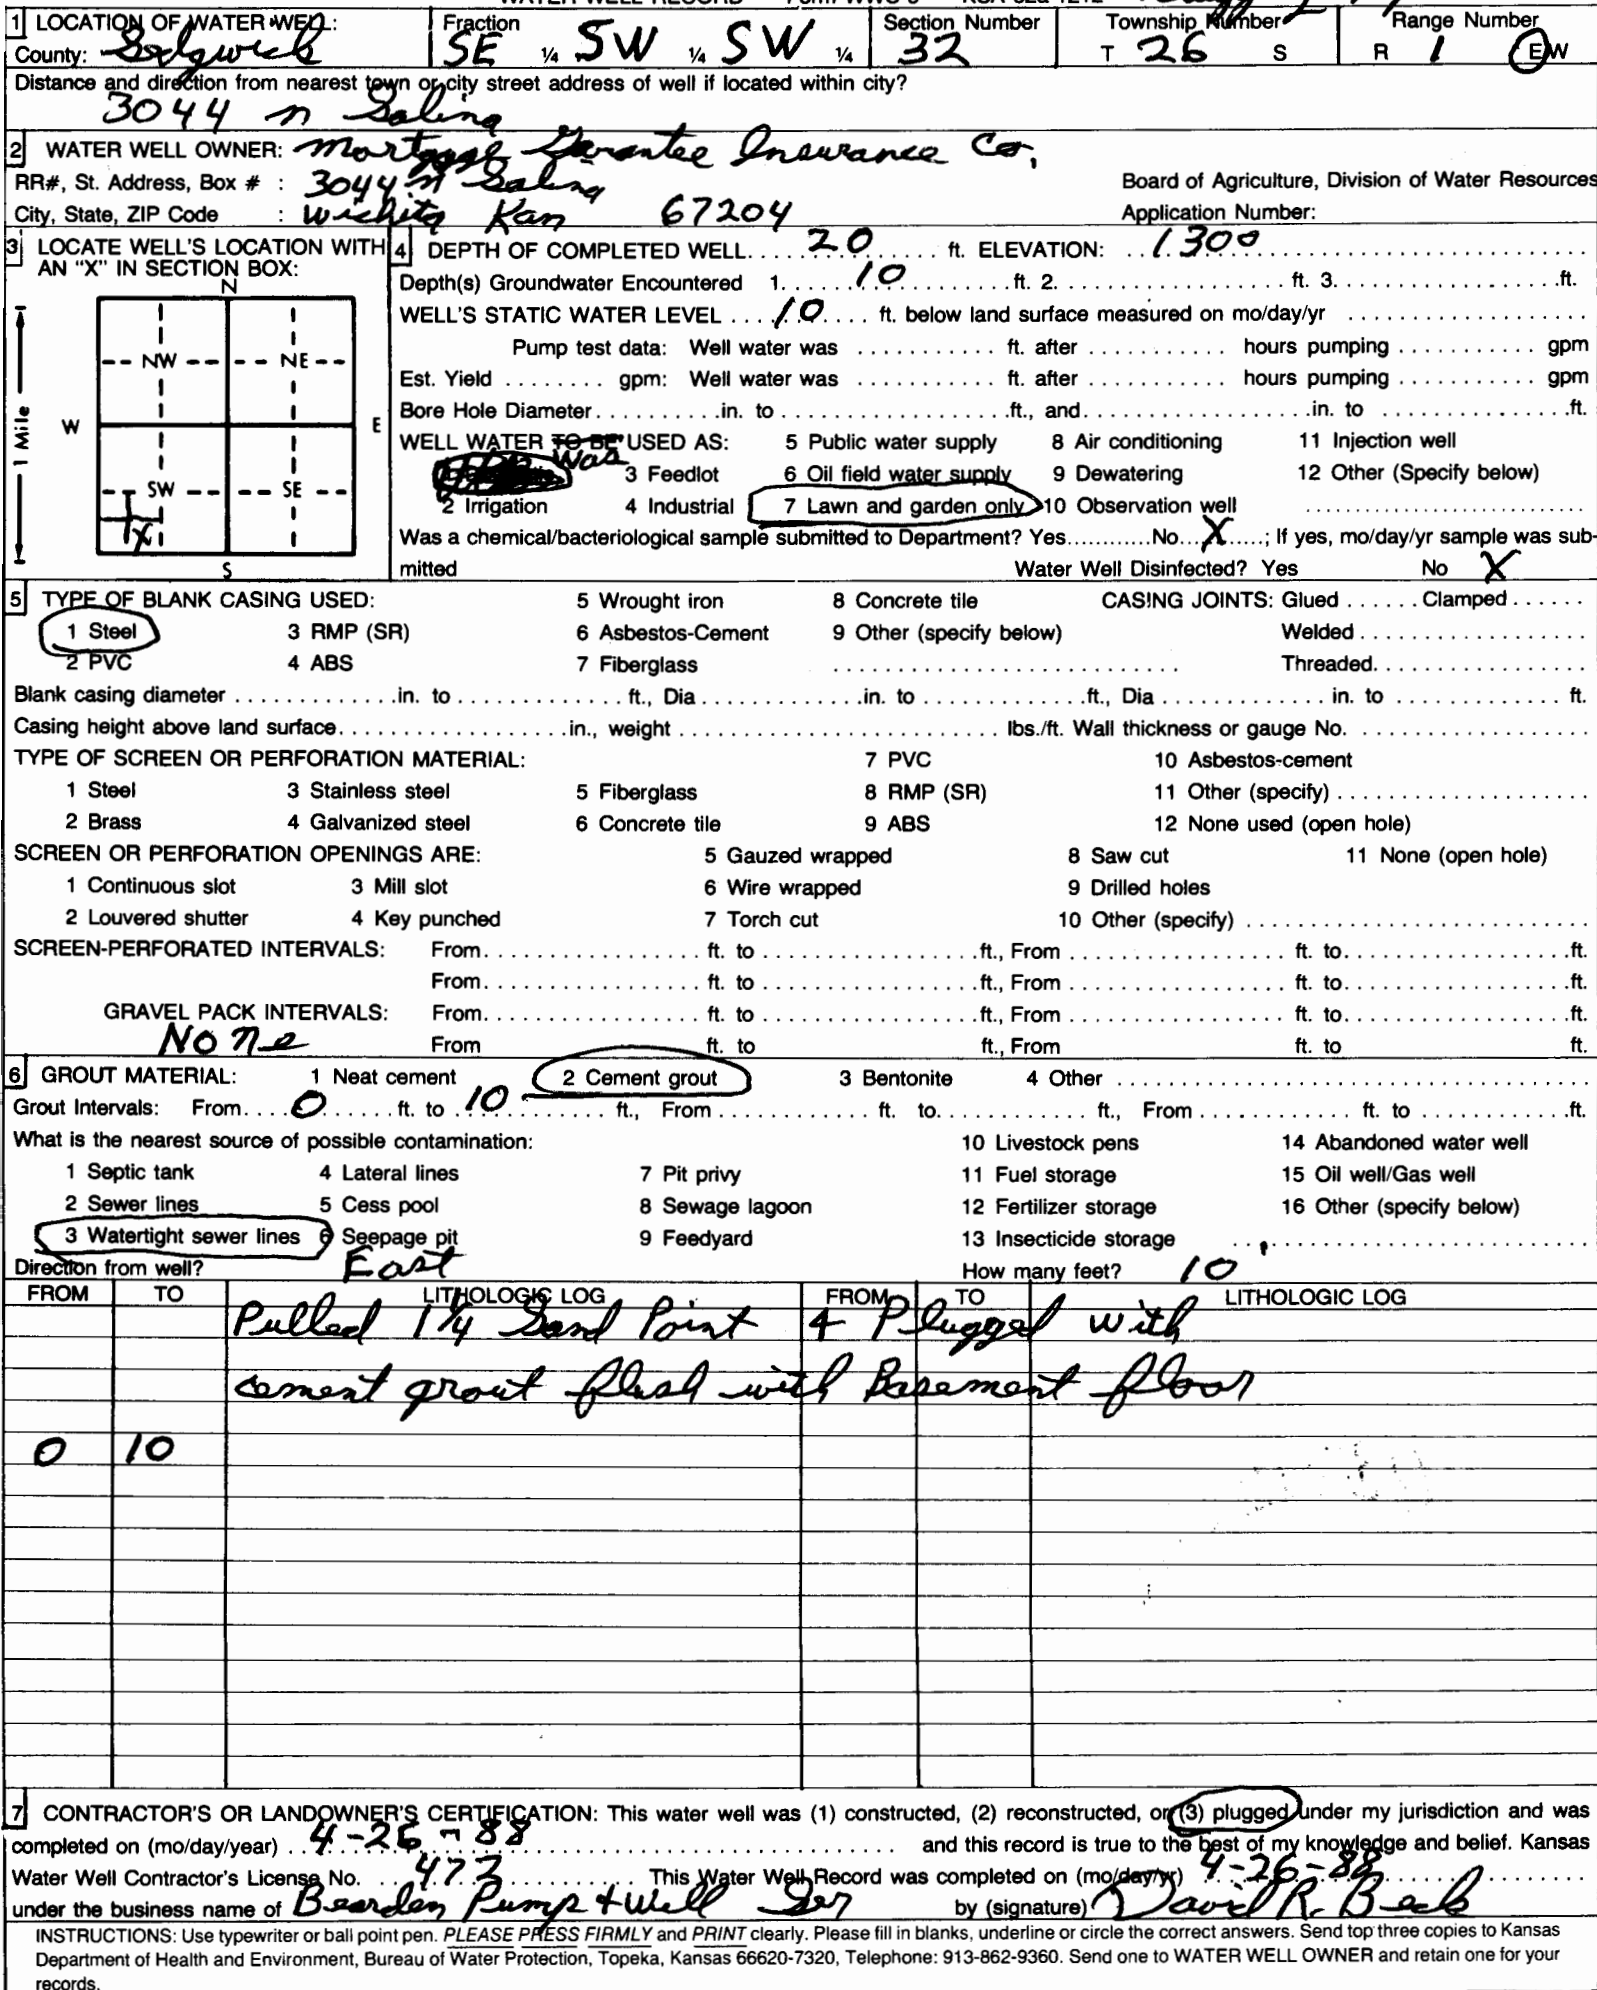 1 LOCATION OF WATER WELL: Fraction Section Number Township Number Range Number
County: Sedgwick SE ¼ SW ¼ SW ¼ 32 T 26 S R 1 E/W
Distance and direction from nearest town or city street address of well if located within city?
3044 n Salina
2 WATER WELL OWNER: Mortgage Garantee Insurance Co.
RR#, St. Address, Box # : 3044 n Salina Board of Agriculture, Division of Water Resources
City, State, ZIP Code : Wichita Kan 67204 Application Number:
3 LOCATE WELL'S LOCATION WITH AN "X" IN SECTION BOX:
N
NW NE
W E
SW SE
X
S
1 Mile
4 DEPTH OF COMPLETED WELL. 20 ft. ELEVATION: 1300
Depth(s) Groundwater Encountered 1. 10 ft. 2. ft. 3. ft.
WELL'S STATIC WATER LEVEL 10 ft. below land surface measured on mo/day/yr
Pump test data: Well water was ft. after hours pumping gpm
Est. Yield gpm: Well water was ft. after hours pumping gpm
Bore Hole Diameter in. to ft., and in. to ft.
WELL WATER TO BE USED AS: 5 Public water supply 8 Air conditioning 11 Injection well
was 3 Feedlot 6 Oil field water supply 9 Dewatering 12 Other (Specify below)
2 Irrigation 4 Industrial 7 Lawn and garden only 10 Observation well
Was a chemical/bacteriological sample submitted to Department? Yes No X ; If yes, mo/day/yr sample was sub-
mitted Water Well Disinfected? Yes No X
5 TYPE OF BLANK CASING USED: 5 Wrought iron 8 Concrete tile CASING JOINTS: Glued Clamped
1 Steel 3 RMP (SR) 6 Asbestos-Cement 9 Other (specify below) Welded
2 PVC 4 ABS 7 Fiberglass Threaded
Blank casing diameter in. to ft., Dia in. to ft., Dia in. to ft.
Casing height above land surface in., weight lbs./ft. Wall thickness or gauge No.
TYPE OF SCREEN OR PERFORATION MATERIAL: 7 PVC 10 Asbestos-cement
1 Steel 3 Stainless steel 5 Fiberglass 8 RMP (SR) 11 Other (specify)
2 Brass 4 Galvanized steel 6 Concrete tile 9 ABS 12 None used (open hole)
SCREEN OR PERFORATION OPENINGS ARE: 5 Gauzed wrapped 8 Saw cut 11 None (open hole)
1 Continuous slot 3 Mill slot 6 Wire wrapped 9 Drilled holes
2 Louvered shutter 4 Key punched 7 Torch cut 10 Other (specify)
SCREEN-PERFORATED INTERVALS: From ft. to ft., From ft. to ft.
From ft. to ft., From ft. to ft.
GRAVEL PACK INTERVALS: From ft. to ft., From ft. to ft.
None From ft. to ft., From ft. to ft.
6 GROUT MATERIAL: 1 Neat cement 2 Cement grout 3 Bentonite 4 Other
Grout Intervals: From 0 ft. to 10 ft., From ft. to ft., From ft. to ft.
What is the nearest source of possible contamination: 10 Livestock pens 14 Abandoned water well
1 Septic tank 4 Lateral lines 7 Pit privy 11 Fuel storage 15 Oil well/Gas well
2 Sewer lines 5 Cess pool 8 Sewage lagoon 12 Fertilizer storage 16 Other (specify below)
3 Watertight sewer lines 6 Seepage pit 9 Feedyard 13 Insecticide storage
Direction from well? East How many feet? 10
FROM TO LITHOLOGIC LOG FROM TO LITHOLOGIC LOG
Pulled 1¼ Sand Point + Plugged with
cement grout flush with Basement floor
0 10
7 CONTRACTOR'S OR LANDOWNER'S CERTIFICATION: This water well was (1) constructed, (2) reconstructed, or (3) plugged under my jurisdiction and was
completed on (mo/day/year) 4-26-88 and this record is true to the best of my knowledge and belief. Kansas
Water Well Contractor's License No. 473 This Water Well Record was completed on (mo/day/yr) 4-26-88
under the business name of Bearden Pump + Well Ser by (signature) David R. Beck
INSTRUCTIONS: Use typewriter or ball point pen. PLEASE PRESS FIRMLY and PRINT clearly. Please fill in blanks, underline or circle the correct answers. Send top three copies to Kansas
Department of Health and Environment, Bureau of Water Protection, Topeka, Kansas 66620-7320, Telephone: 913-862-9360. Send one to WATER WELL OWNER and retain one for your
records.